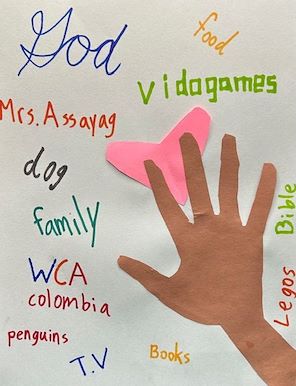 God
food
Vidogames
Mrs. Assayag
dog
family
Bible
WCA
colombia
Legos
penguins
T.V
Books